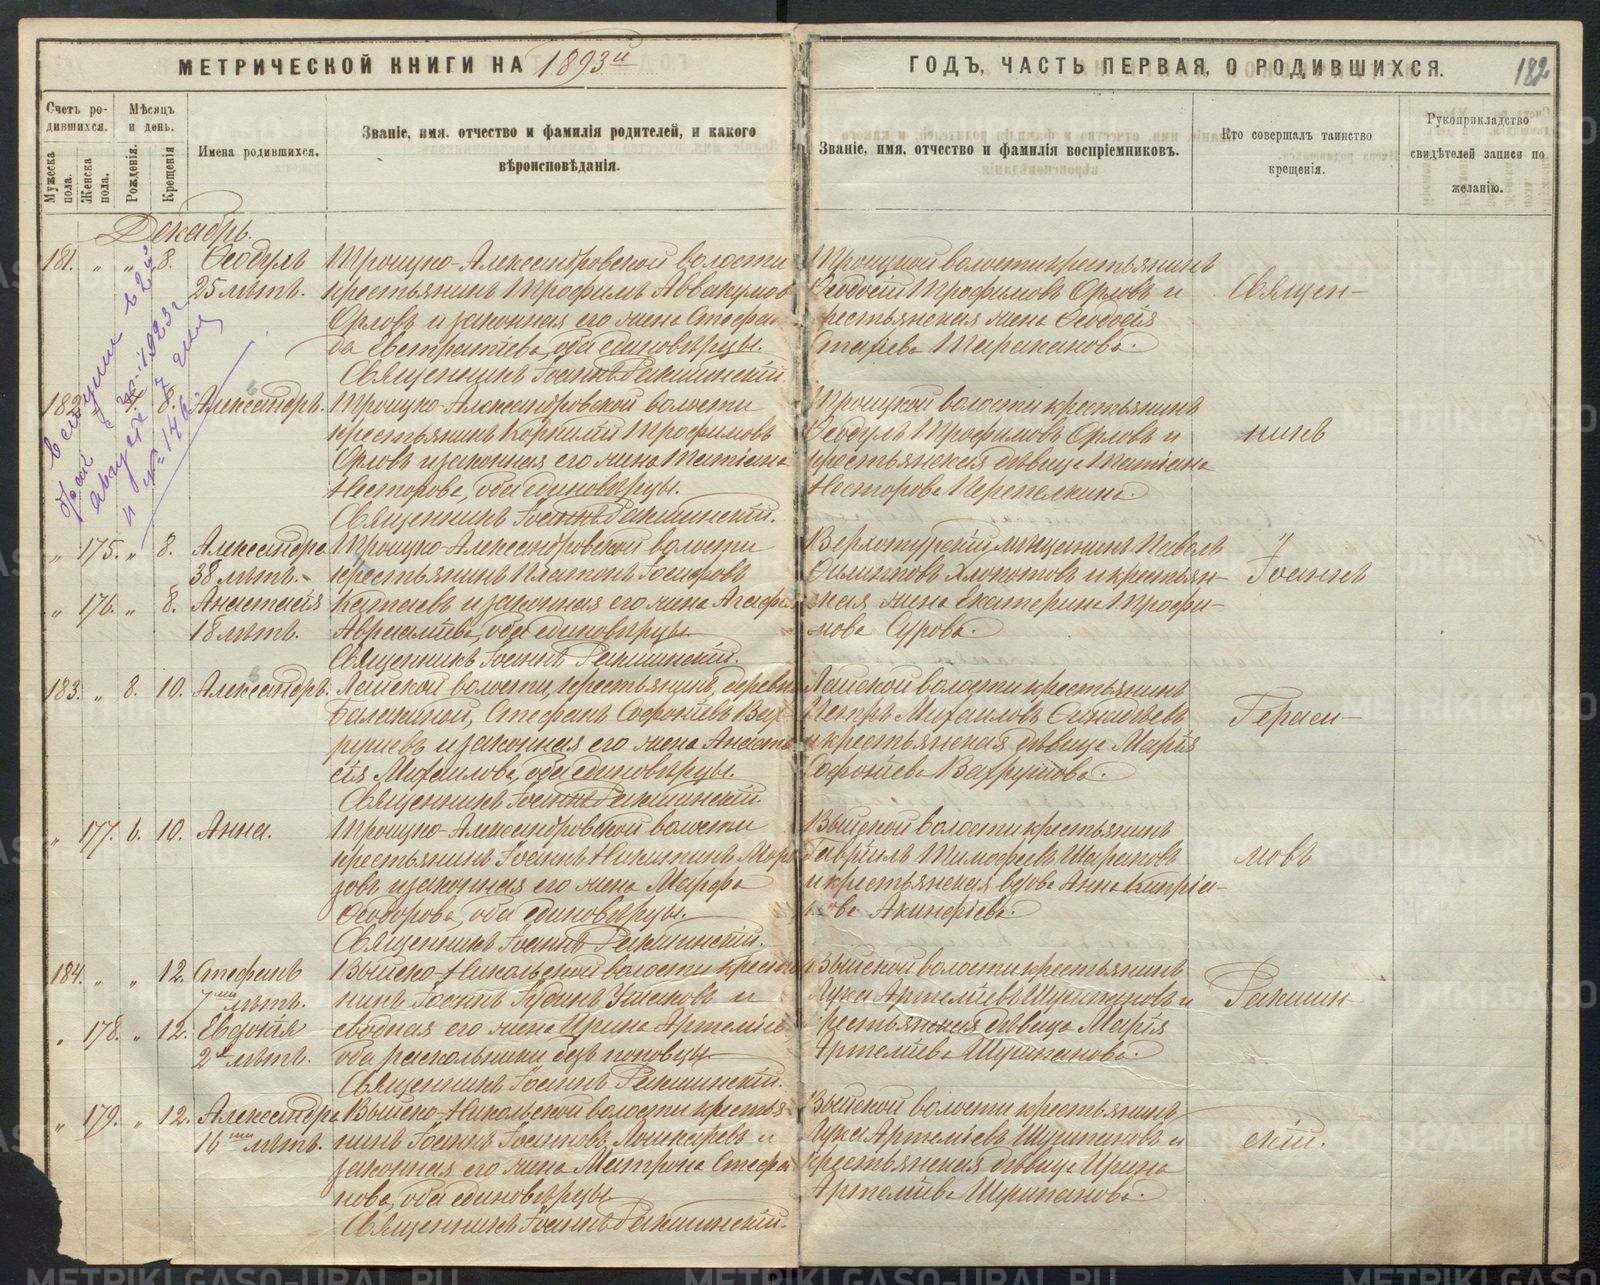 МЕТРИЧЕСКОЙ КНИГИ НА 1893й
ГОДЪ, ЧАСТЬ ПЕРВАЯ, О РОДИВШИХСЯ.
182
Счетъ ро-
дившихся.
Мужеска
пола.
Женска
пола.
Мѣсяцъ
и день.
Рожденія.
Крещенія
Имена родившихся.
Званіе, имя, отчество и фамилія родителей, и какого
вѣроисповѣданія.
Званіе, имя, отчество и фамилія воспріемниковъ.
Кто совершалъ таинство
крещенія.
Рукоприкладство
свидѣтелей записи по
желанію.
Декабрь.
181. " " 8. Ѳеодулъ
25 лѣтъ.
Троицко-Александровской волости
крестьянинъ Трофимъ Аввакумовъ
Орловъ и законная его жена Стефани
да Евстратіева, оба единовѣрцы.
Священникъ Іоаннъ Ракшинскій.
Троицкой волости крестьянинъ
Ѳеодосій Трофимовъ Орловъ и
крестьянская жена Ѳеодосія
Тараканова.
вступил
1923 г
182. 8. Александръ.
Троицко-Александровской волости
крестьянинъ Корнилій Трофимовъ
Орловъ и законная его жена Татіана
Несторова, оба единовѣрцы.
Священникъ Іоаннъ Ракшинскій.
Троицкой волости крестьянинъ
Ѳеодулъ Трофимовъ Орловъ и
крестьянская дѣвица Татіана
Несторова Перепелкина.
" 175. " 8. Александра
38 лѣтъ.
" 176. " 8. Анастасія
18 лѣтъ.
Троицко-Александровской волости
крестьянинъ Платонъ Іосифовъ
Катаевъ и законная его жена Агафія
Авраамова, оба единовѣрцы.
Священникъ Іоаннъ Ракшинскій.
Верхотурскій мѣщанинъ Павелъ
Филипповъ Хлопотовъ и крестьян-
ская жена Екатерина Трофи-
мова Сурова.
183. " 8. 10. Александръ.
Лайской волости, крестьянинъ, деревни
Балакиной, Стефанъ Софоніевъ Вах-
рушевъ и законная его жена Анаста
сія Михаилова, оба единовѣрцы.
Священникъ Іоаннъ Ракшинскій.
Лайской волости крестьянинъ
Петръ Михаиловъ
и крестьянская дѣвица Марія
Софоніева Вахрушова.
" 177. 6. 10. Анна.
Троицко-Александровской волости
крестьянинъ Іоаннъ Никитинъ Моро
зовъ и законная его жена Марфа
Ѳеодорова, оба единовѣрцы.
Священникъ Іоаннъ Ракшинскій.
Выйской волости крестьянинъ
Гавріилъ Тимофеевъ Шараповъ
и крестьянская вдова Анна Кипріа-
нова Акинфіева.
184. " " 12. Стефанъ
7ми лѣтъ.
" 178. " 12. Евдокія
2хъ лѣтъ.
Выйско-Никольской волости крестья
нинъ Іоаннъ Ушаковъ и
сводная его жена Ирина Артеміева
оба раскольники безъ поповцы.
Священникъ Іоаннъ Ракшинскій.
Выйской волости крестьянинъ
Лука Артеміевъ Щурипановъ и
крестьянская дѣвица Марія
Артеміева Щурипанова.
" 179. " 12. Александра
16ти лѣтъ.
Выйско-Никольской волости крестья-
нинъ Іоаннъ Іоанновъ Лошкаревъ и
законная его жена Матрона Стефа
нова, оба единовѣрцы
Священникъ Іоаннъ Ракшинскій.
Выйской волости крестьянинъ
Лука Артеміевъ Щурипановъ и
крестьянская дѣвица Ирина
Артеміева Щурипанова.
Священ-
никъ
Іоаннъ
Гераси-
мовъ
Ракшин-
скій.
METRIKI.GASO-URAL.RU